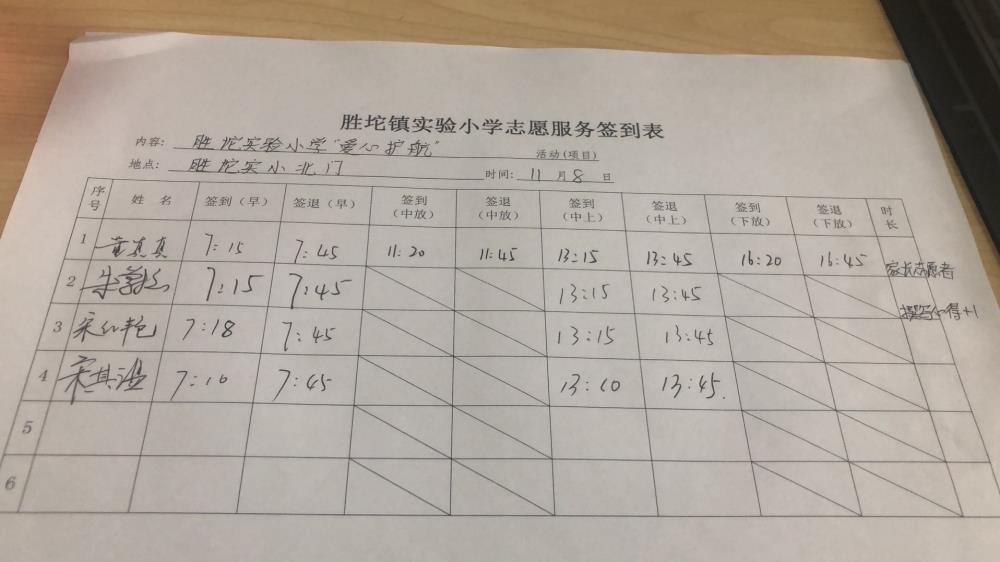 胜坨镇实验小学志愿服务签到表
内容: 胜坨实验小学"爱心护航" 活动(项目)
地点: 胜坨实小北门 时间: 11 月 8 日
序号 姓名 签到(早) 签退(早) 签到(中放) 签退(中放) 签到(中上) 签退(中上) 签到(下放) 签退(下放) 时长
1 董真真 7:15 7:45 11:20 11:45 13:15 13:45 16:20 16:45 家长志愿者
2 朱 7:15 7:45 13:15 13:45 撰写心得+1
3 宋红艳 7:18 7:45 13:15 13:45
4 宋其温 7:10 7:45 13:10 13:45.
5
6